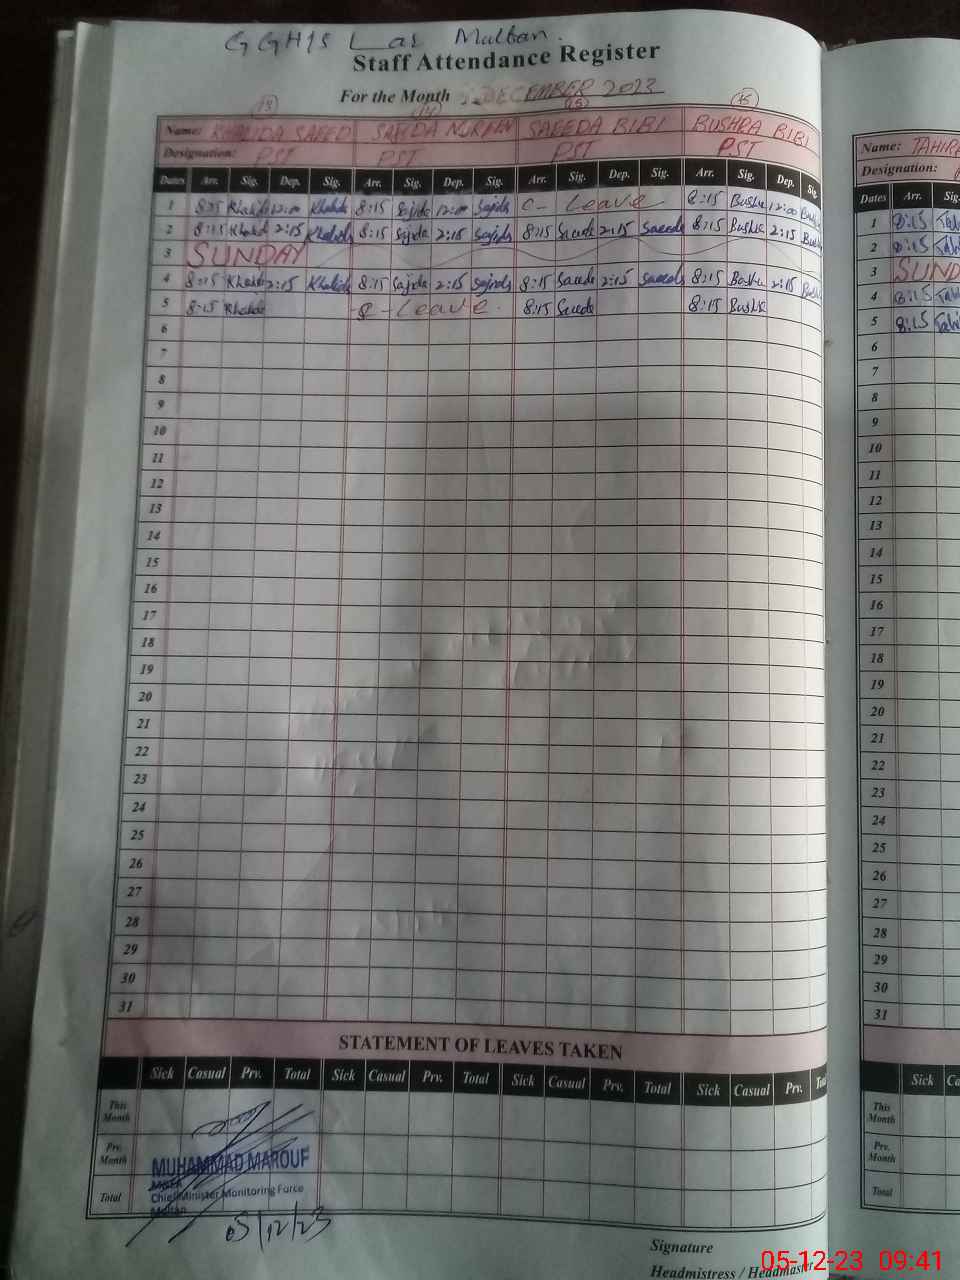 GGHSS Lar Multan.
Staff Attendance Register
For the Month DECEMBER 2023
13 14 15 16
Name: KHALIDA SAEED SAJIDA NUREEN SAEEDA BIBI BUSHRA BIBI
Designation: PST PST PST PST
Dates Arr. Sig. Dep. Sig. Arr. Sig. Dep. Sig. Arr. Sig. Dep. Sig. Arr. Sig. Dep. Sig.
1 8:15 Khalida 12:00 Khalida 8:15 Sajida 12:00 Sajida C- Leave 8:15 Bushra 12:00
2 8:15 Khalida 2:15 Khalida 8:15 Sajida 2:15 Sajida 8:15 Saeeda 2:15 Saeeda 8:15 Bushra 2:15
3 SUNDAY
4 8:15 Khalida 2:15 Khalida 8:15 Sajida 2:15 Sajida 8:15 Saeeda 2:15 Saeeda 8:15 Bushra 2:15
5 8:15 Khalida C-Leave. 8:15 Saeeda 8:15 Bushra
6
7
8
9
10
11
12
13
14
15
16
17
18
19
20
21
22
23
24
25
26
27
28
29
30
31
STATEMENT OF LEAVES TAKEN
Sick Casual Prv. Total Sick Casual Prv. Total Sick Casual Prv. Total Sick Casual Prv.
This Month
Prv. Month
Total
MUHAMMAD MAROUF
Chief Minister Monitoring Force
Multan
05/12/23
Signature
Headmistress / Headmaster
Name: TAHIRA
Designation:
Dates Arr. Sig.
1 8:15
2 8:15
3 SUND
4 8:15
5 8:15
6
7
8
9
10
11
12
13
14
15
16
17
18
19
20
21
22
23
24
25
26
27
28
29
30
31
Sick
This Month
Prv. Month
Total
05-12-23 09:41